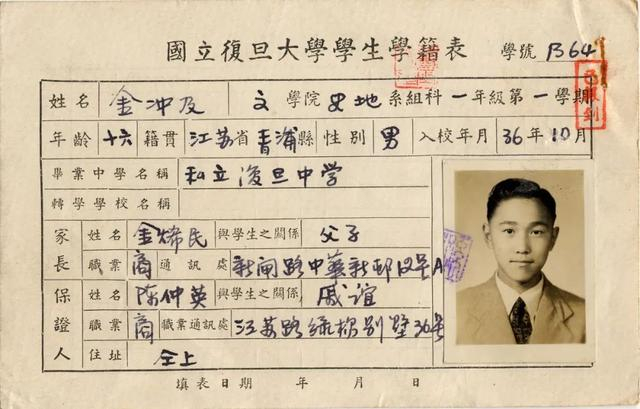 國立復旦大學學生學籍表 學號 B64
姓名 金冲及 文學院 史地系組科一年級第一學期
年齡 十六 籍貫 江苏省青浦縣 性別 男 入校年月 36年10月
畢業中學名稱 私立復旦中学
轉學學校名稱
家長 姓名 金 民 與學生之關係 父子
職業 商 通訊處 新闸路中華新邨
保證人 姓名 陈仲英 與學生之關係 戚谊
職業 商 職業通訊處 江苏路 别墅36号
住址 仝上
填表日期 年 月 日